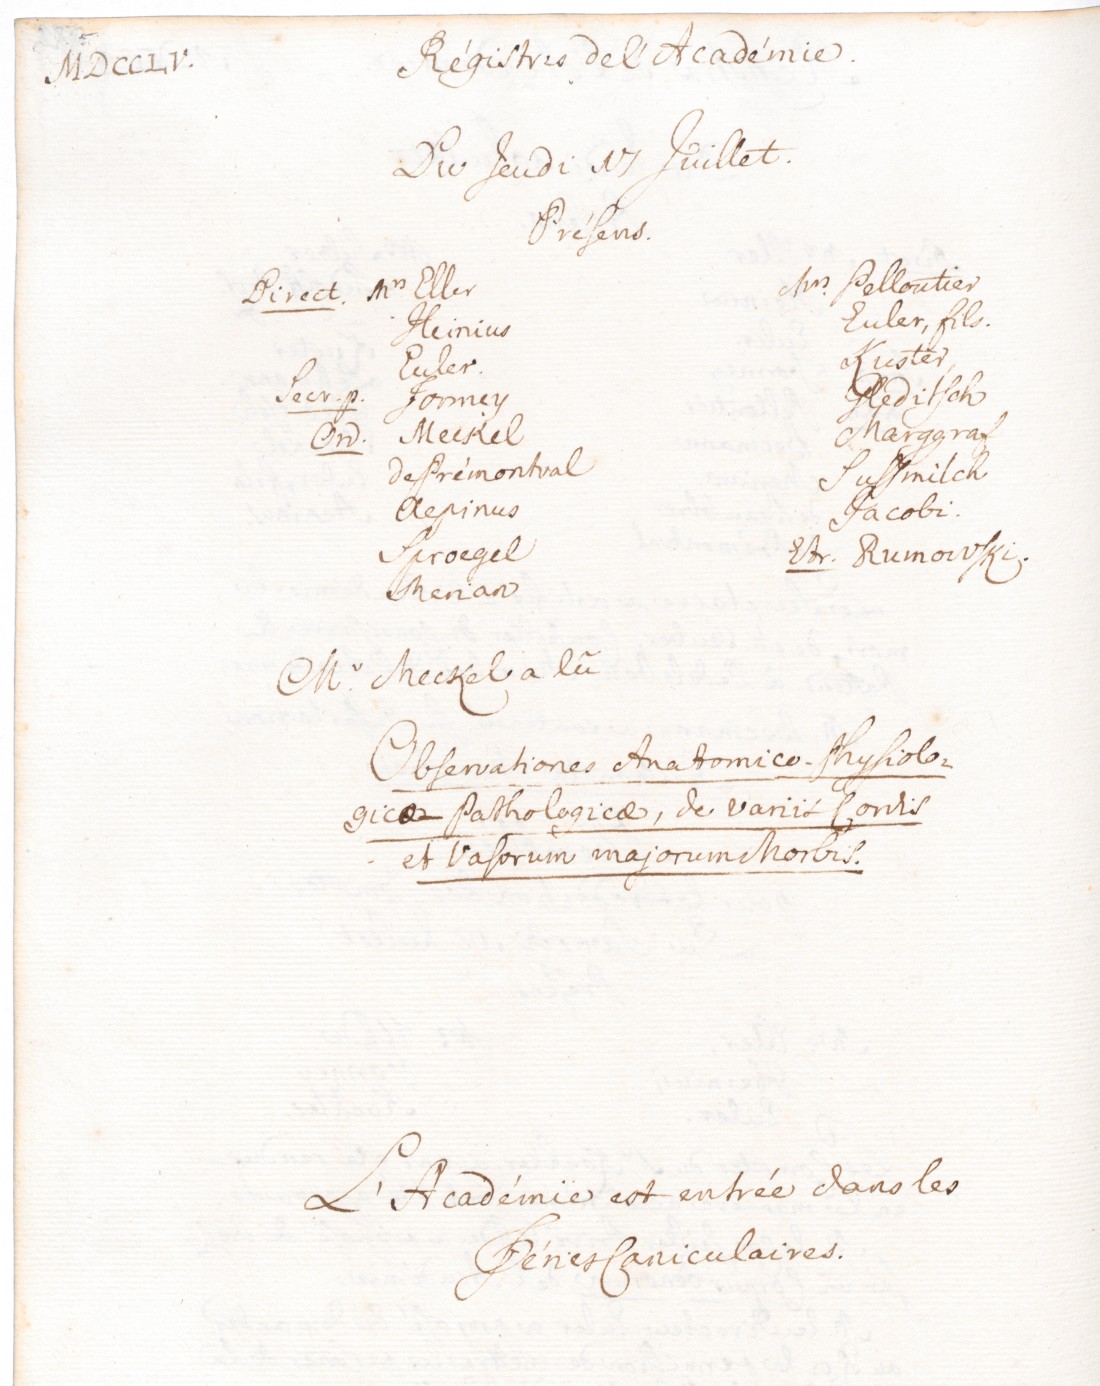 MDCCLV.
Régistres de l'Académie.
Du Jeudi 17 Juillet.
Présens.
Direct. Mrs Eller
Heinius
Euler.
Secr. p. Formey
Ord. Meckel
de Prémontval
Aepinus
Sproegel
Merian
Mrs. Pelloutier
Euler, fils.
Kuster,
Gleditsch
Marggraf
Sussmilch
Jacobi.
Etr. Rumowski.
Mr. Meckel a lû
Observationes Anatomico-Physiolo=
gicæ Pathologicæ, de variis Cordis
et Vasorum majorum Morbis.
L'Académie est entrée dans les
Féries Caniculaires.